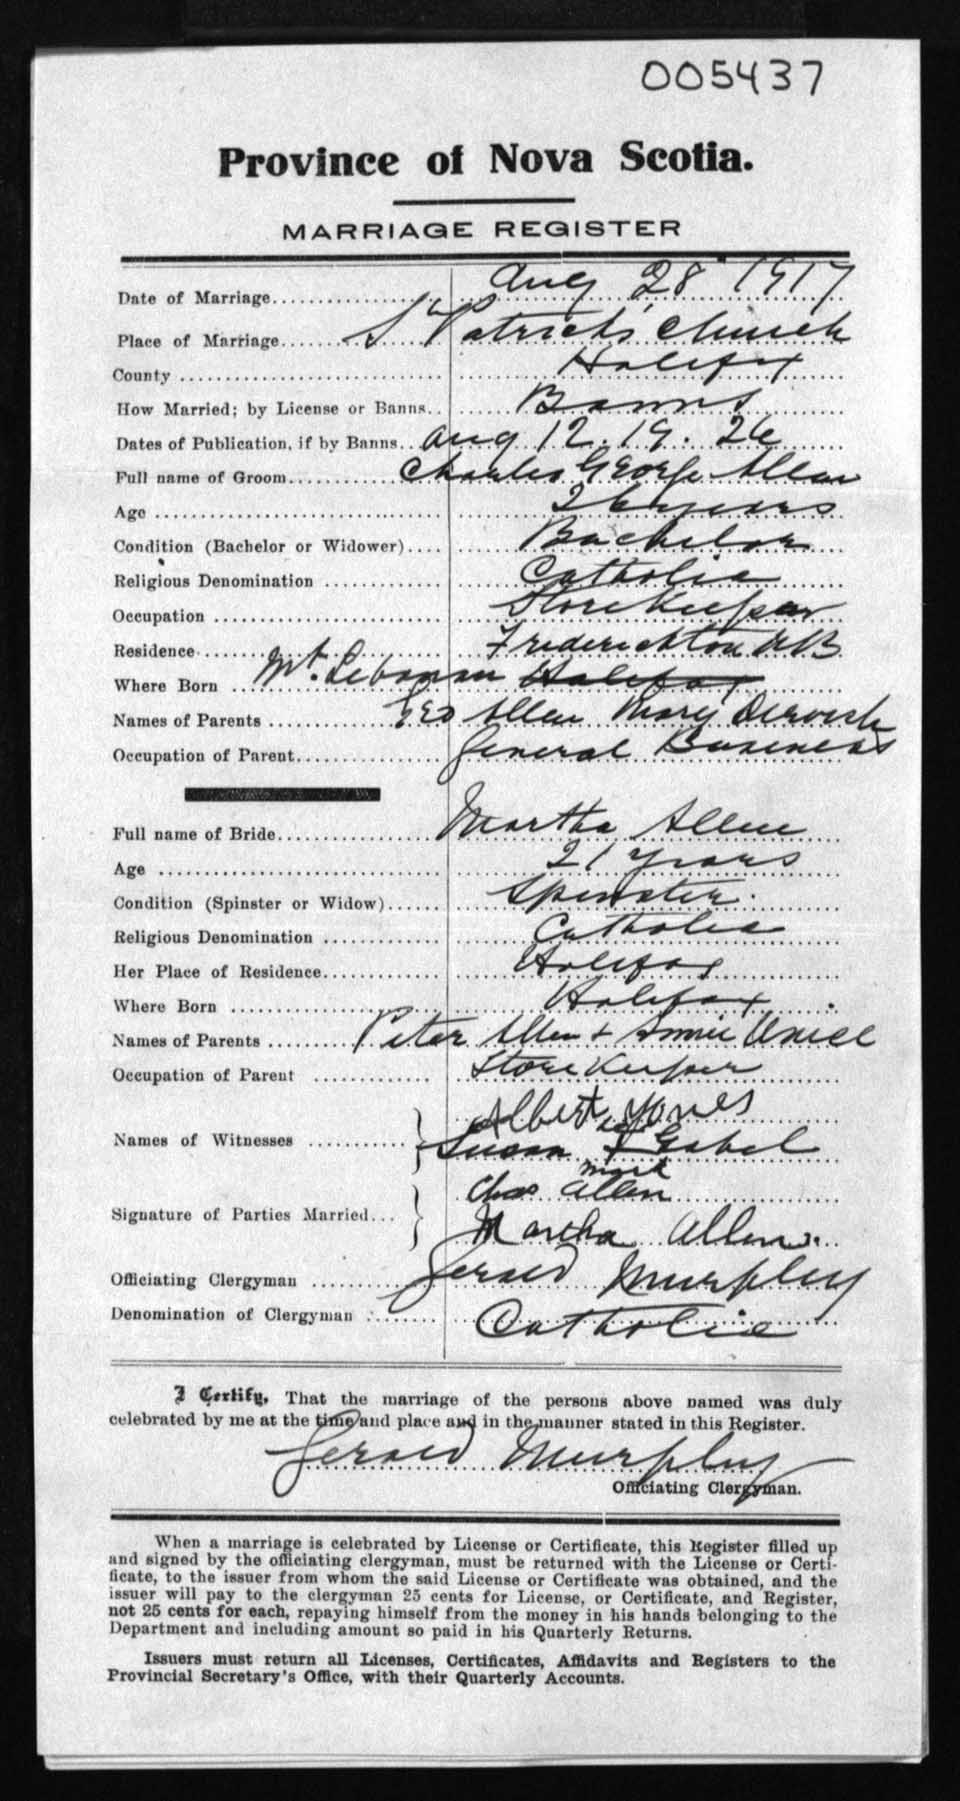 005437
Province of Nova Scotia.
MARRIAGE REGISTER
Date of Marriage Aug 28 1917
Place of Marriage St Patrick's Church
County Halifax
How Married; by License or Banns Banns
Dates of Publication, if by Banns Aug 12. 19. 26
Full name of Groom Charles George Allen
Age 26 years
Condition (Bachelor or Widower) Bachelor
Religious Denomination Catholic
Occupation Storekeeper
Residence Frederickton NB
Where Born Mt. Lebanon Halifax
Names of Parents Geo Allen Mary Dervish
Occupation of Parent General Business
Full name of Bride Martha Allen
Age 21 years
Condition (Spinster or Widow) Spinster
Religious Denomination Catholic
Her Place of Residence Halifax
Where Born Halifax
Names of Parents Peter Allen + Annie
Occupation of Parent Storekeeper
Names of Witnesses Albert Jones
Susan X Gabel
mark
Signature of Parties Married Chas Allen
Martha Allen.
Officiating Clergyman Gerald Murphy
Denomination of Clergyman Catholic
I Certify, That the marriage of the persons above named was duly
celebrated by me at the time and place and in the manner stated in this Register.
Gerald Murphy
Officiating Clergyman.
When a marriage is celebrated by License or Certificate, this Register filled up
and signed by the officiating clergyman, must be returned with the License or Certi-
ficate, to the issuer from whom the said License or Certificate was obtained, and the
issuer will pay to the clergyman 25 cents for License, or Certificate, and Register,
not 25 cents for each, repaying himself from the money in his hands belonging to the
Department and including amount so paid in his Quarterly Returns.
Issuers must return all Licenses, Certificates, Affidavits and Registers to the
Provincial Secretary's Office, with their Quarterly Accounts.